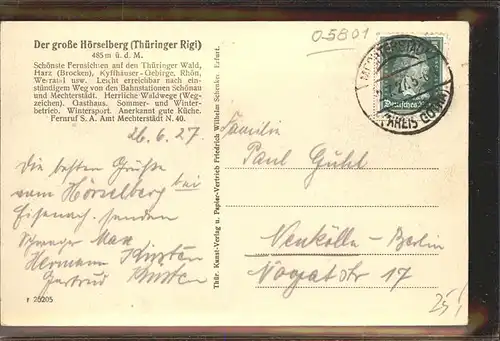 Der große Hörselberg (Thüringer Rigi)
485 m ü. d. M.
Schönste Fernsichten auf den Thüringer Wald,
Harz (Brocken), Kyffhäuser-Gebirge, Rhön,
Werratal usw. Leicht erreichbar nach ein-
stündigem Weg von den Bahnstationen Schönau
und Mechterstädt. Herrliche Waldwege (Weg-
zeichen). Gasthaus. Sommer- und Winter-
betrieb. Wintersport. Anerkannt gute Küche.
Fernruf S. A. Amt Mechterstädt N. 40.
26.6.27.
Die besten Grüße
vom Hörselberg bei
Eisenach senden
Schwager Max
Hermann Kürsten
Gertrud Kürsten
r 25205
Thür. Kunst-Verlag u. Papier-Vertrieb Friedrich Wilhelm Schenker, Erfurt.
05801
MECHTERSTÄDT
(KREIS GOTHA)
Deutsches
Familie
Paul Guhl
Neukölln-Berlin
Nogatstr 17
25!